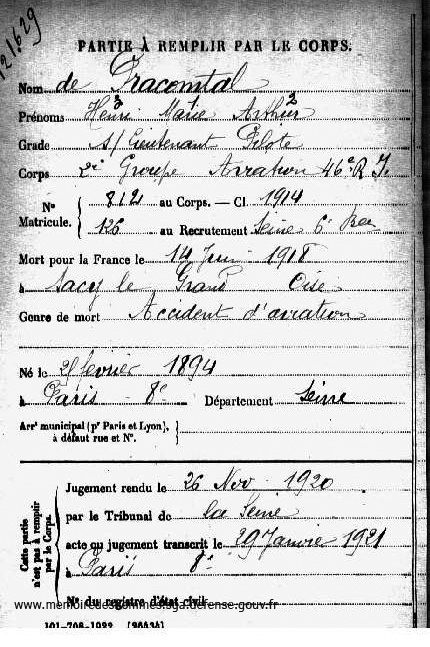 121629
PARTIE À REMPLIR PAR LE CORPS.
Nom de Fracomtal
Prénoms Henri 3 Marie Arthur 2
Grade S/Lieutenant Pilote
Corps 2e Groupe Aviation 46e R I.
Nº Matricule. 812 au Corps. — Cl. 1914
126 au Recrutement Seine 6e Bau
Mort pour la France le 14 Juin 1918
à Sacy le Grand Oise
Genre de mort Accident d'aviation
Né le février 1894
à Paris - 8e Département Seine
Arrt municipal (pr Paris et Lyon), à défaut rue et Nº.
Cette partie n'est pas à remplir par le Corps.
Jugement rendu le 26 Nov. 1920
par le Tribunal de la Seine
acte ou jugement transcrit le 29 Janvier 1921
à Paris 8e
Nº du registre d'état civil
www.memoiredeshommes.sga.defense.gouv.fr
101-708-1922. [26434]